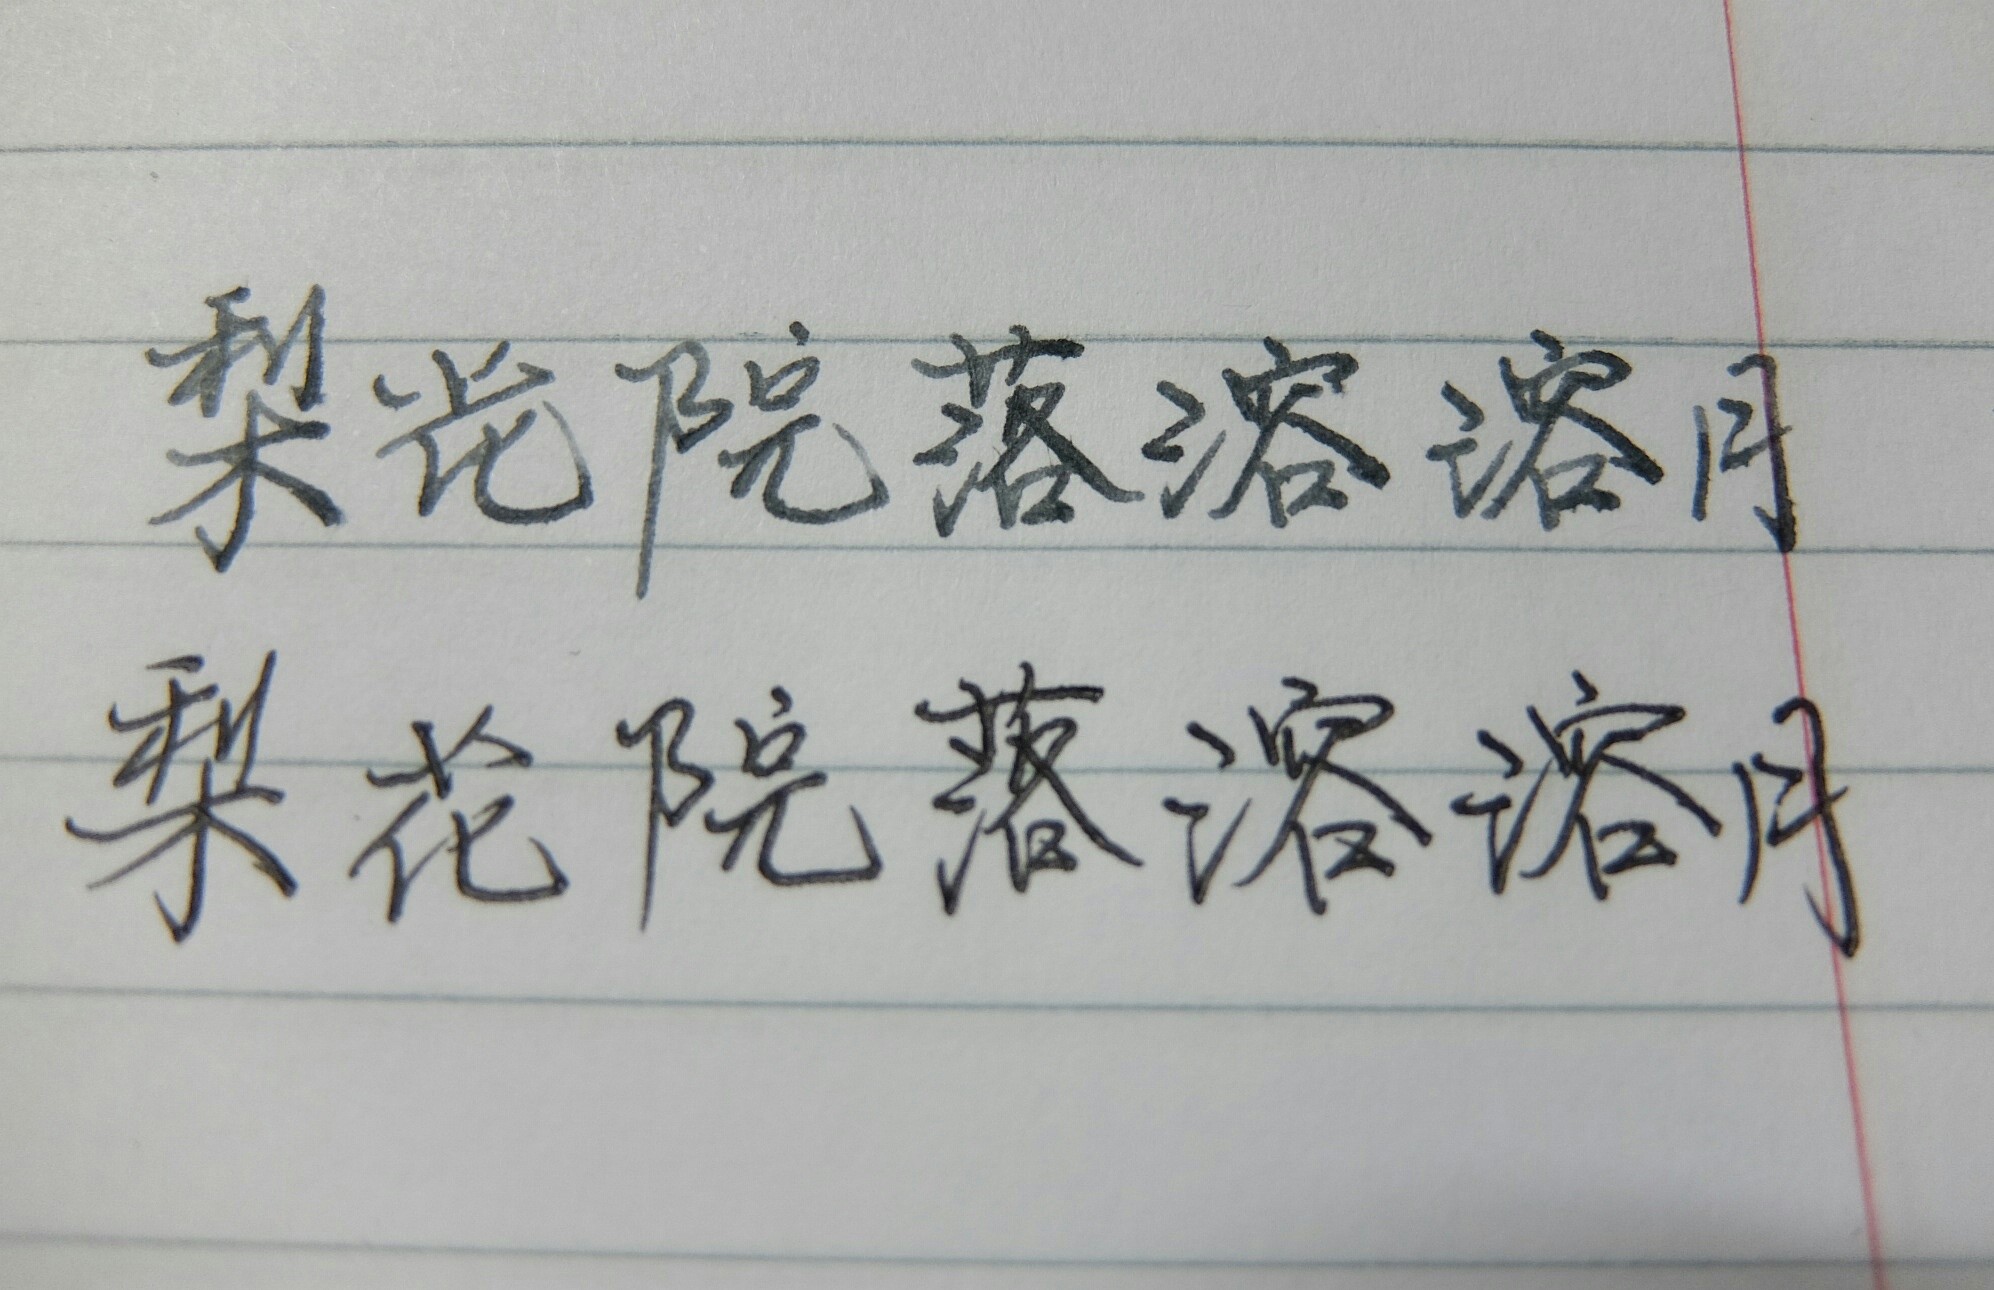 梨花院落溶溶月
梨花院落溶溶月